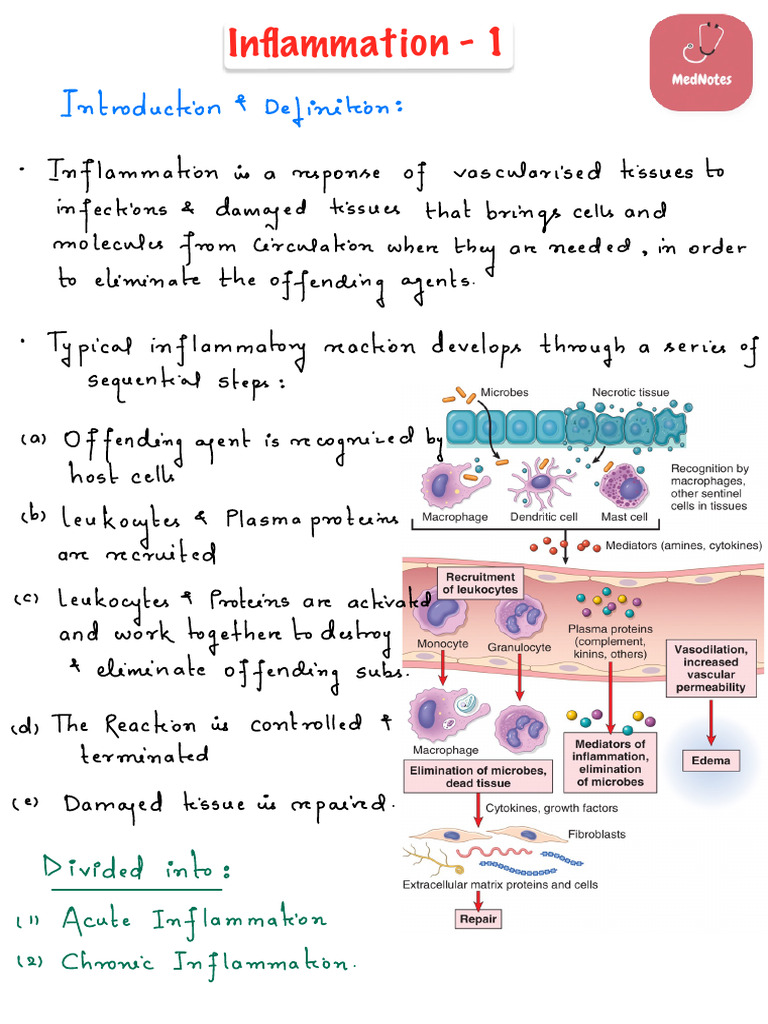 Inflammation - 1
MedNotes
Introduction & Definition:
• Inflammation is a response of vascularised tissues to
infections & damaged tissues that brings cells and
molecules from circulation where they are needed, in order
to eliminate the offending agents.
• Typical inflammatory reaction develops through a series of
sequential steps:
(a) Offending agent is recognized by
host cells
(b) Leukocytes & Plasma proteins
are recruited
(c) Leukocytes & Proteins are activated
and work togethere to destroy
& eliminate offending subs.
(d) The Reaction is controlled &
terminated
(e) Damaged tissue is repaired.
Divided into:
(1) Acute Inflammation
(2) Chronic Inflammation.
Microbes
Necrotic tissue
Macrophage
Dendritic cell
Mast cell
Recognition by
macrophages,
other sentinel
cells in tissues
Mediators (amines, cytokines)
Recruitment
of leukocytes
Monocyte
Granulocyte
Plasma proteins
(complement,
kinins, others)
Vasodilation,
increased
vascular
permeability
Macrophage
Elimination of microbes,
dead tissue
Mediators of
inflammation,
elimination
of microbes
Edema
Cytokines, growth factors
Fibroblasts
Extracellular matrix proteins and cells
Repair